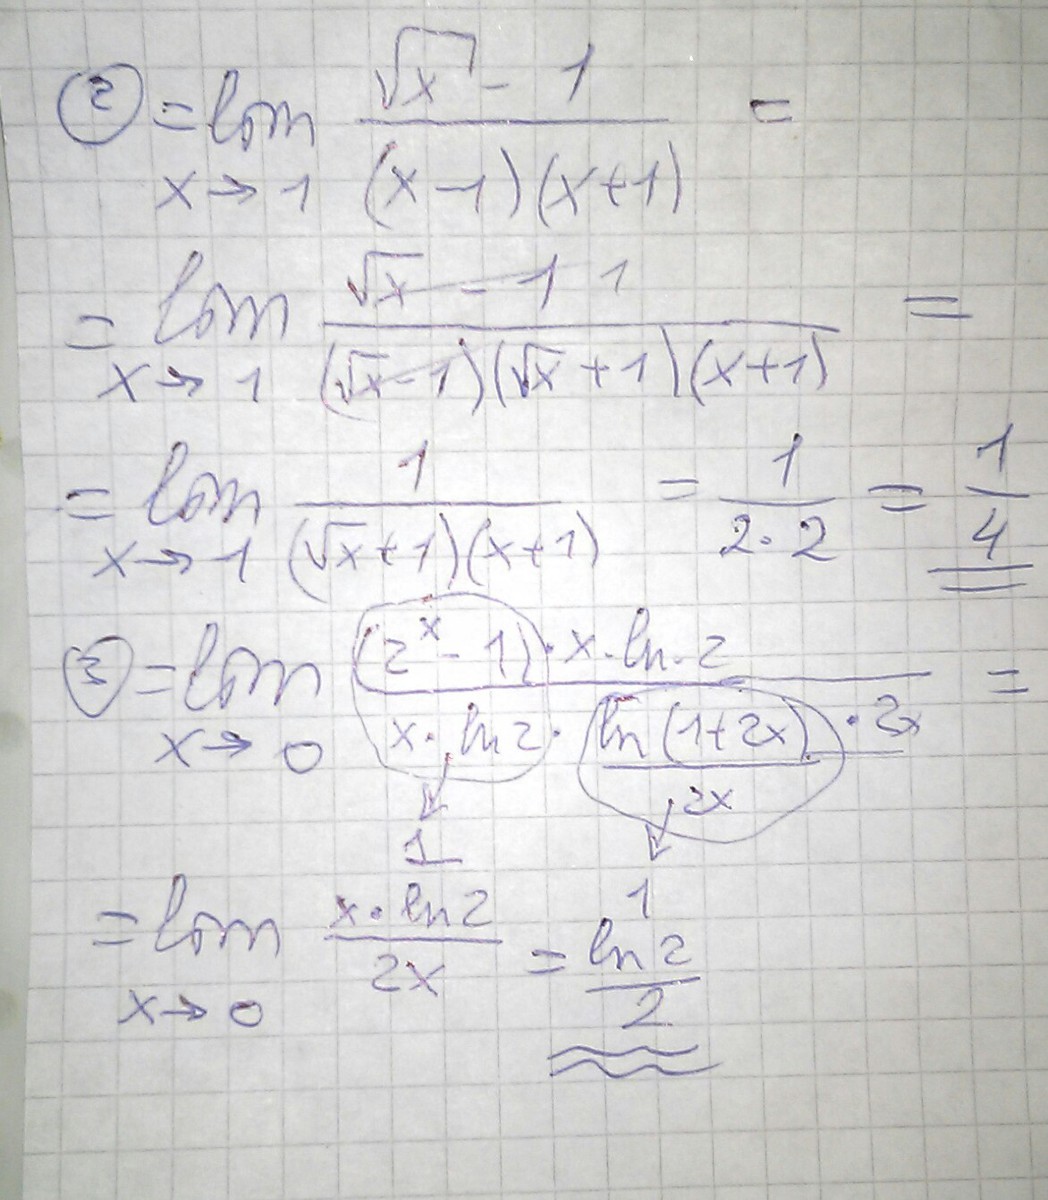 ② = lim √x - 1 / (x-1)(x+1) =
x→1
= lim √x - 1 1 / (√x-1)(√x+1)(x+1) =
x→1
= lim 1 / (√x+1)(x+1) = 1 / 2·2 = 1/4
x→1
③ = lim (2^x - 1)·x·ln·2 / x·ln2· ln(1+2x)/2x ·2x =
x→0
1
1
= lim x·ln2 / 2x = ln2 / 2
x→0